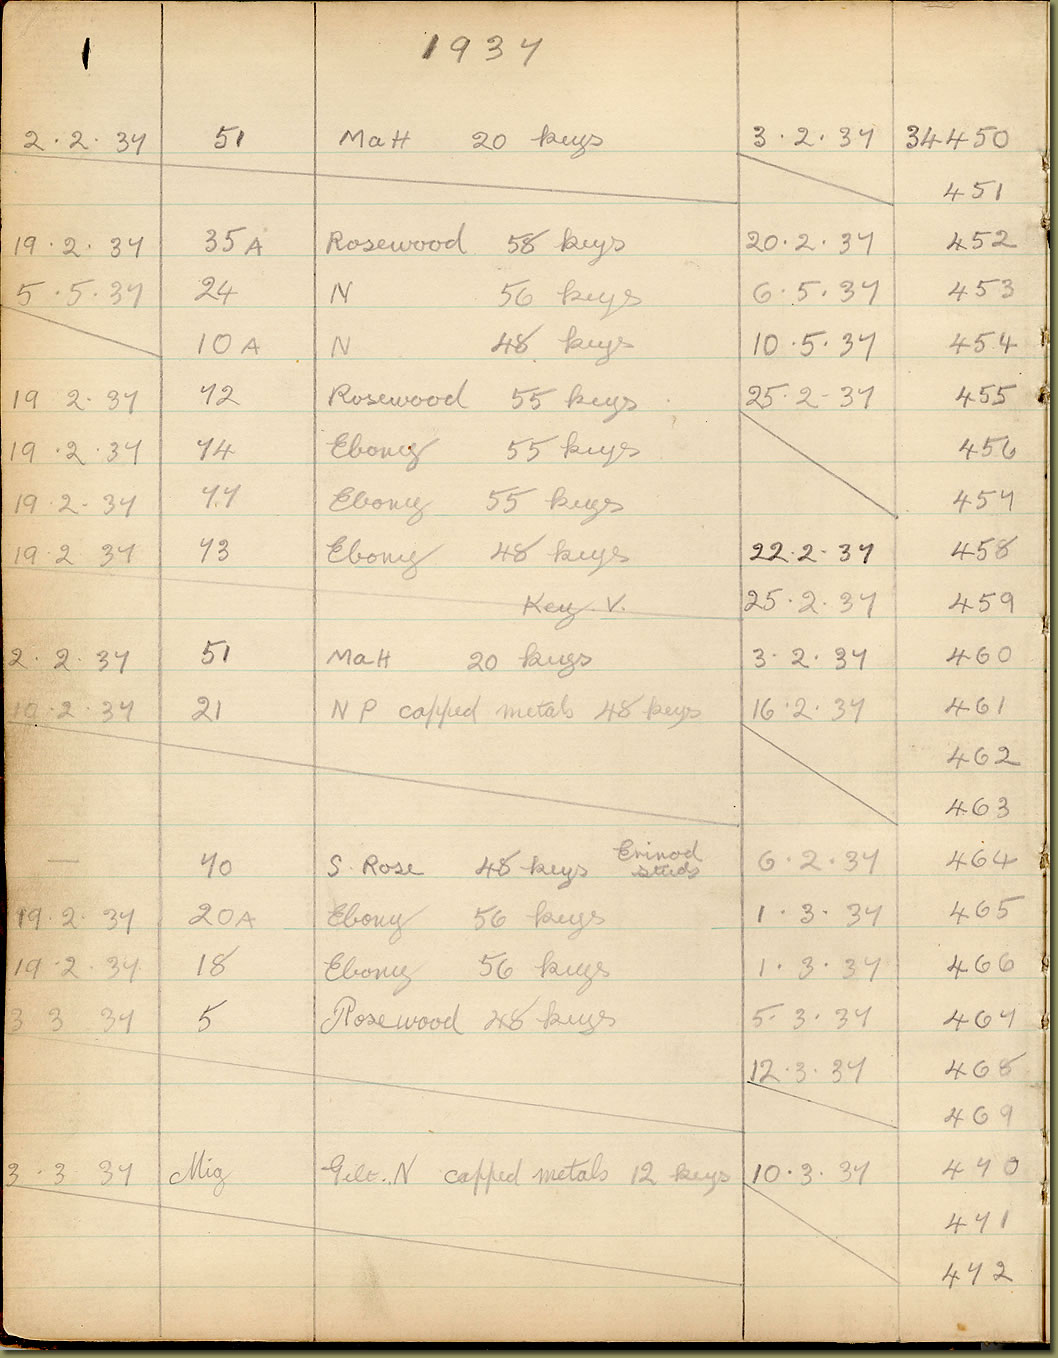 1 1937
2·2·37 51 Mah 20 keys 3·2·37 34450
451
19·2·37 35A Rosewood 58 keys 20·2·37 452
5·5·37 24 N 56 keys 6·5·37 453
10A N 48 keys 10·5·37 454
19 2·37 72 Rosewood 55 keys 25·2-37 455
19·2·37 74 Ebony 55 keys 456
19·2-37 77 Ebony 55 keys 457
19·2 37 73 Ebony 48 keys 22·2-37 458
Key V. 25·2·37 459
2·2·37 51 Mah 20 keys 3·2·37 460
10·2·37 21 N P capped metals 48 keys 16·2·37 461
462
463
— 70 S. Rose 48 keys Erinod studs 6·2·37 464
19·2·37 20A Ebony 56 keys 1·3·37 465
19·2·37 18 Ebony 56 keys 1·3·37 466
3 3 37 5 Rosewood 48 keys 5·3·37 467
12·3·37 468
469
3·3 37 Mig Gilt. N capped metals 12 keys 10·3·37 470
471
472